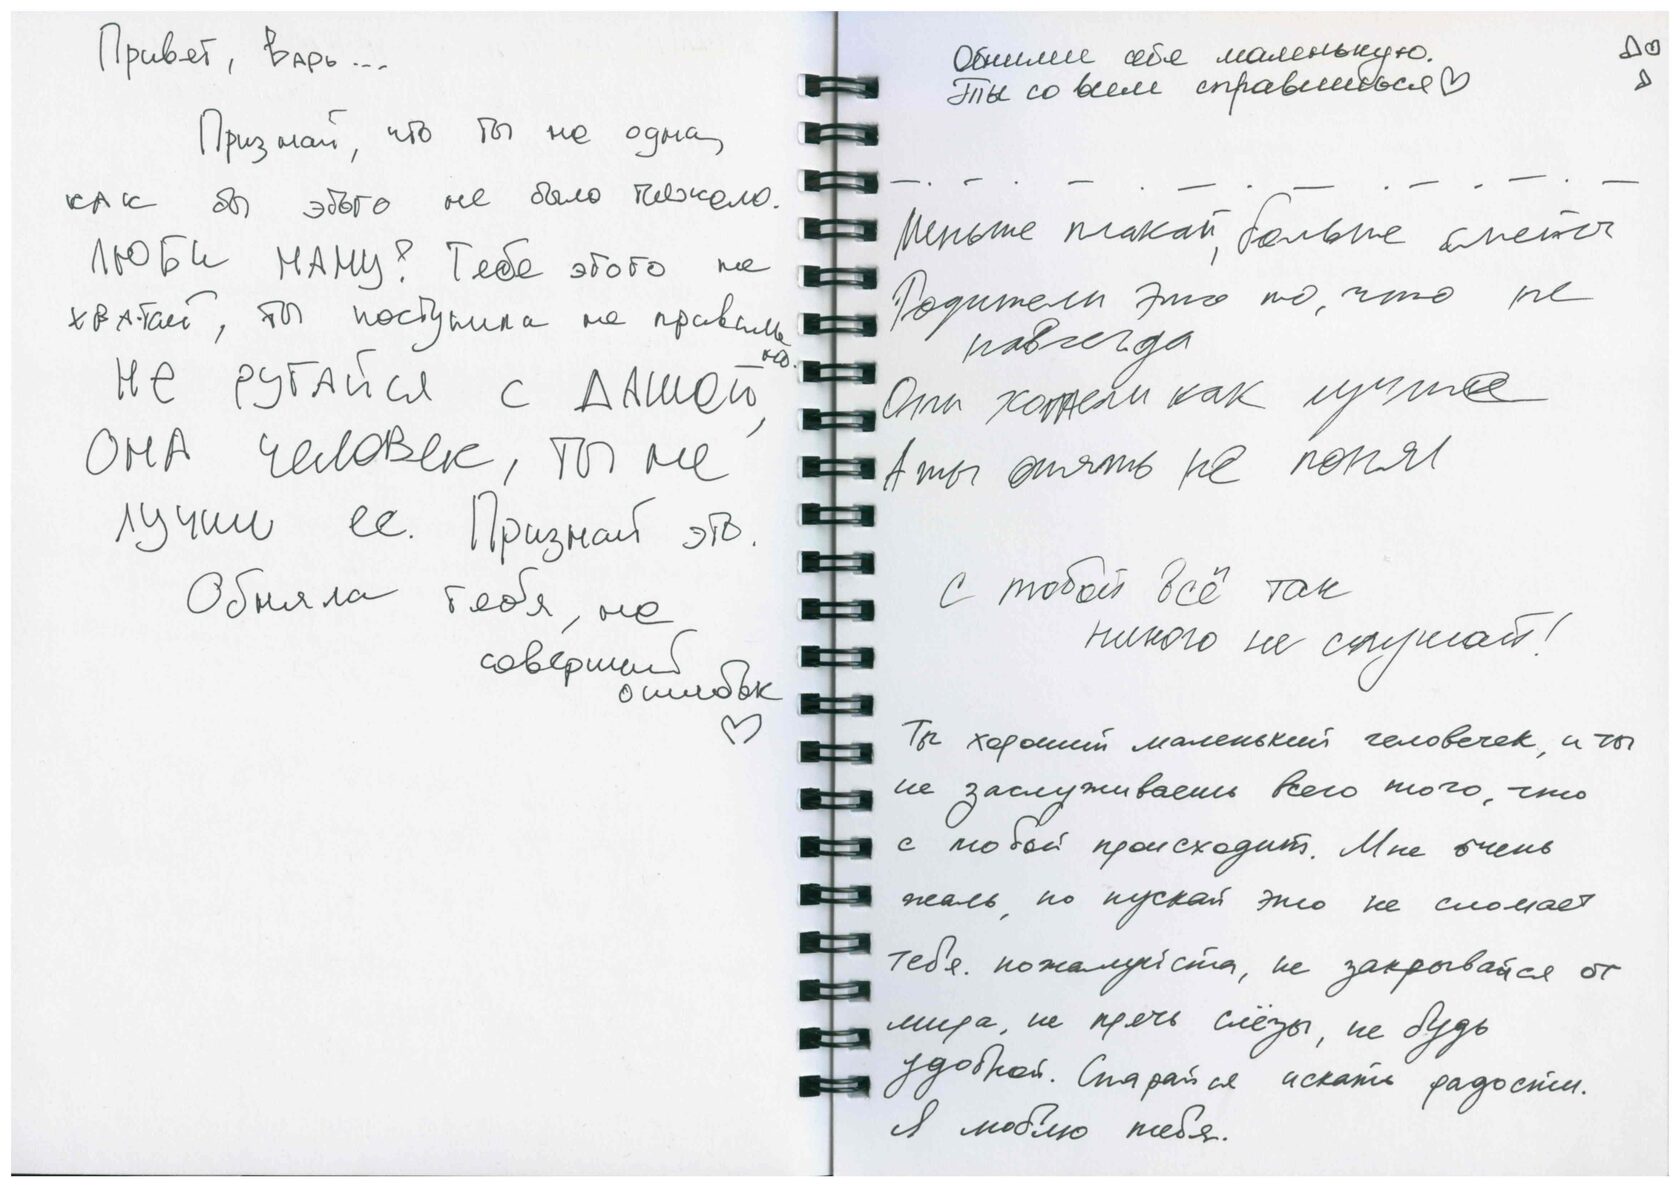 Привет, Варь...
Признай, что ты не одна,
как бы этого не было тяжело.
ЛЮБи МАМУ! Тебе этого не
хватает, ты поступила не правиль
но.
Не ругайся с ДАШей,
ОНА человек, ты не
лучше ее. Признай это.
Обняла тебя, не
совершай
ошибок
Обними себя маленькую.
Ты со всем справишься
Меньше плакай, больше смейся
Родители это то, что не
навсегда
Они хотели как лучше
А ты опять не понял
С тобой всё так
никого не слушай!
Ты хороший маленький человечек, и ты
не заслуживаешь всего того, что
с тобой происходит. Мне очень
жаль, но пускай это не сломает
тебя. пожалуйста, не закрывайся от
мира, не прячь слёзы, не будь
удобной. Старайся искать радости.
Я люблю тебя.